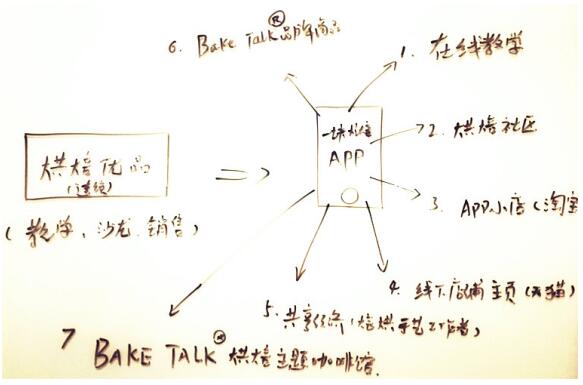 6. Bake Talk® 品牌商品
1. 在线教学
一块烘焙
APP
2. 烘焙社区
烘焙优品
(连锁)
(教学、沙龙、销售)
3. APP小店(淘宝
4. 线下店铺主页(天猫)
5. 共享经济(烘焙手艺工作者)
7 BAKE TALK® 烘焙主题咖啡馆.